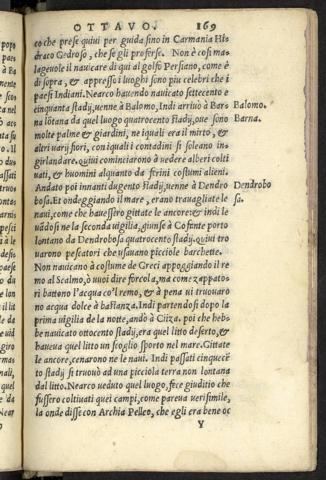 OTTAVO. 169
co che prese quiui per guida sino in Carmania His
draco Gedroso, che se gli proferse. Non è cosi ma-
lageuole il nauicare di qui al golfo Persiano, come è
di sopra, & appresso i luoghi sono piu celebri che i
paesi Indiani. Nearco hauendo nauicato settecento e
cinquanta stadij, uenne à Balomo, Indi arriuò à Bar Balomo.
na lõtana da quel luogo quattrocento stadij, oue sono Barna.
molte palme & giardini, ne i quali era il mirto, &
altri uarij fiori, con i quali i contadini si soleano in-
girlandare. Quiui cominciorono à uedere alberi colti
uati, & huomini alquanto da ferini costumi alieni.
Andato poi innanti dugento stadij, uenne à Dendro Dendrobo
bosa. Et ondeggiando il mare, erano trauagliate le sa.
naui, come che hauessero gittate le ancore: & indi le
uādosi ne la seconda uigilia, giunse à Cofante porto
lontano da Dendrobosa quattrocento stadij. Quiui tro
uarono pescatori che usauano picciole barchette.
Non nauicano à costume de Greci appoggiando il re
mo al Scalmo, ò uuoi dire forcola, ma come zappato-
ri battono l'acqua co'l remo, & à pena ui trouarono
no acqua dolce à bastanza. Indi partendosi dopo la
prima uigilia de la notte, andò à Ciiza. poi che heb-
be nauicato ottocento stadij, era quel lito deserto, &
haueua quel lito un scoglio sporto nel mare. Gittate
le ancore, cenarono ne le naui. Indi passati cinquecẽ
to stadij si truouò ad una picciola terra non lontana
dal litto. Nearco ueduto quel luogo, fece giuditio che
fussero coltiuati quei campi, come pareua uerisimile,
la onde disse con Archia Pelleo, che egli era bene oc
Y